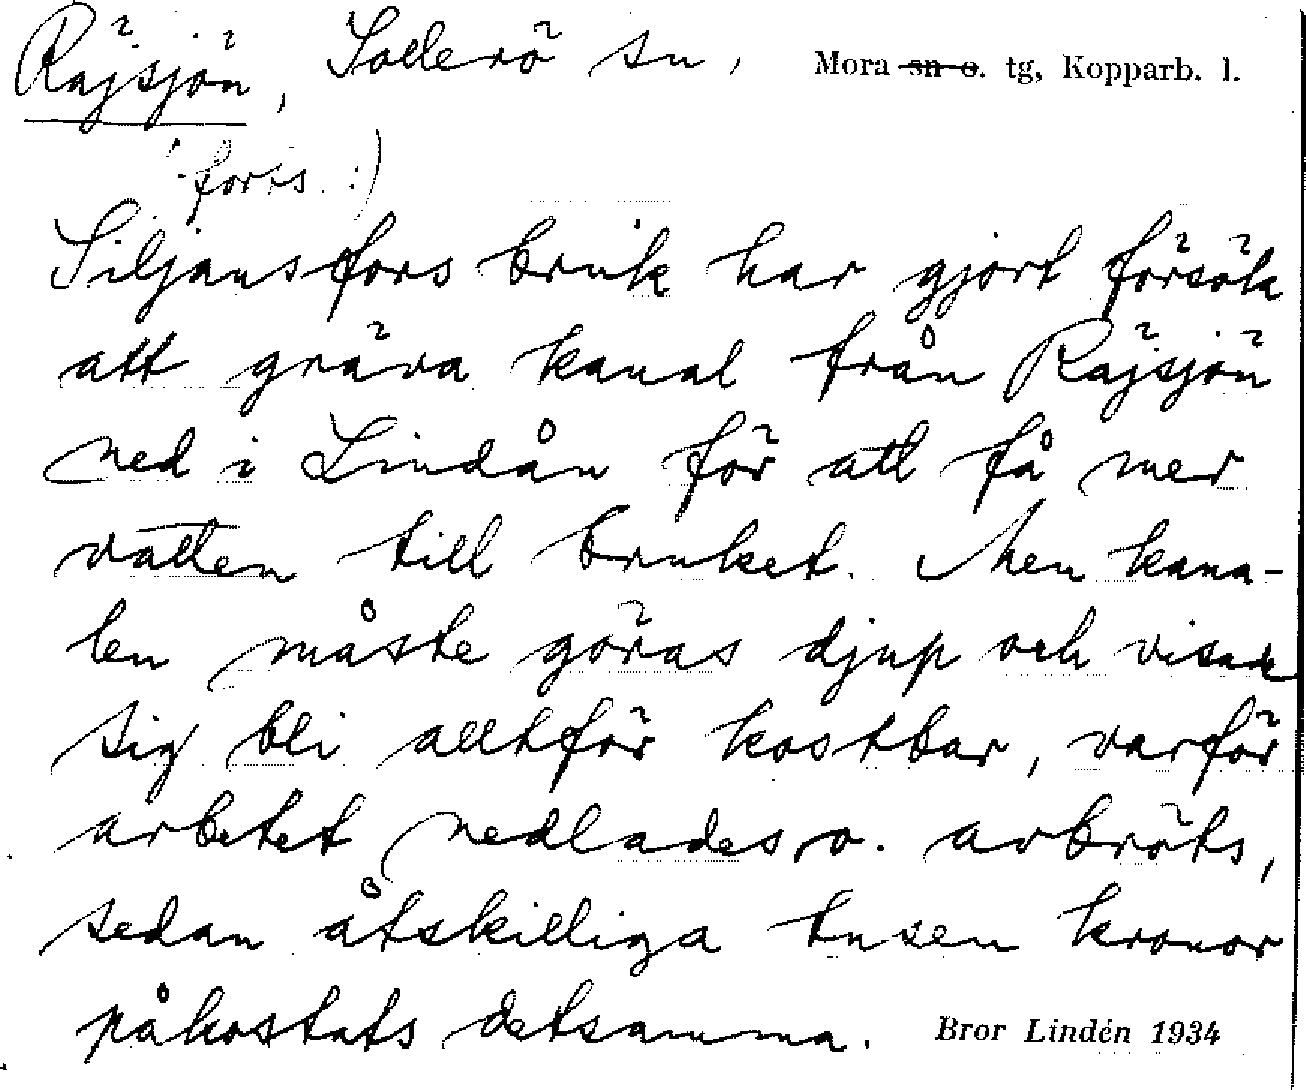 Räjsjön, Sollerö sn, Mora sn o. tg, Kopparb. l.
forts. :)
Siljansfors bruk har gjort försök
att gräva kanal från Räjsjön
ned i Lindån för att få mer
vatten till bruket. Men kana-
len måste göras djup och visade
sig bli alltför kostbar, varför
arbetet nedlades o. avbröts,
sedan åtskilliga tusen kronor
påkostats detsamma. Bror Lindén 1934